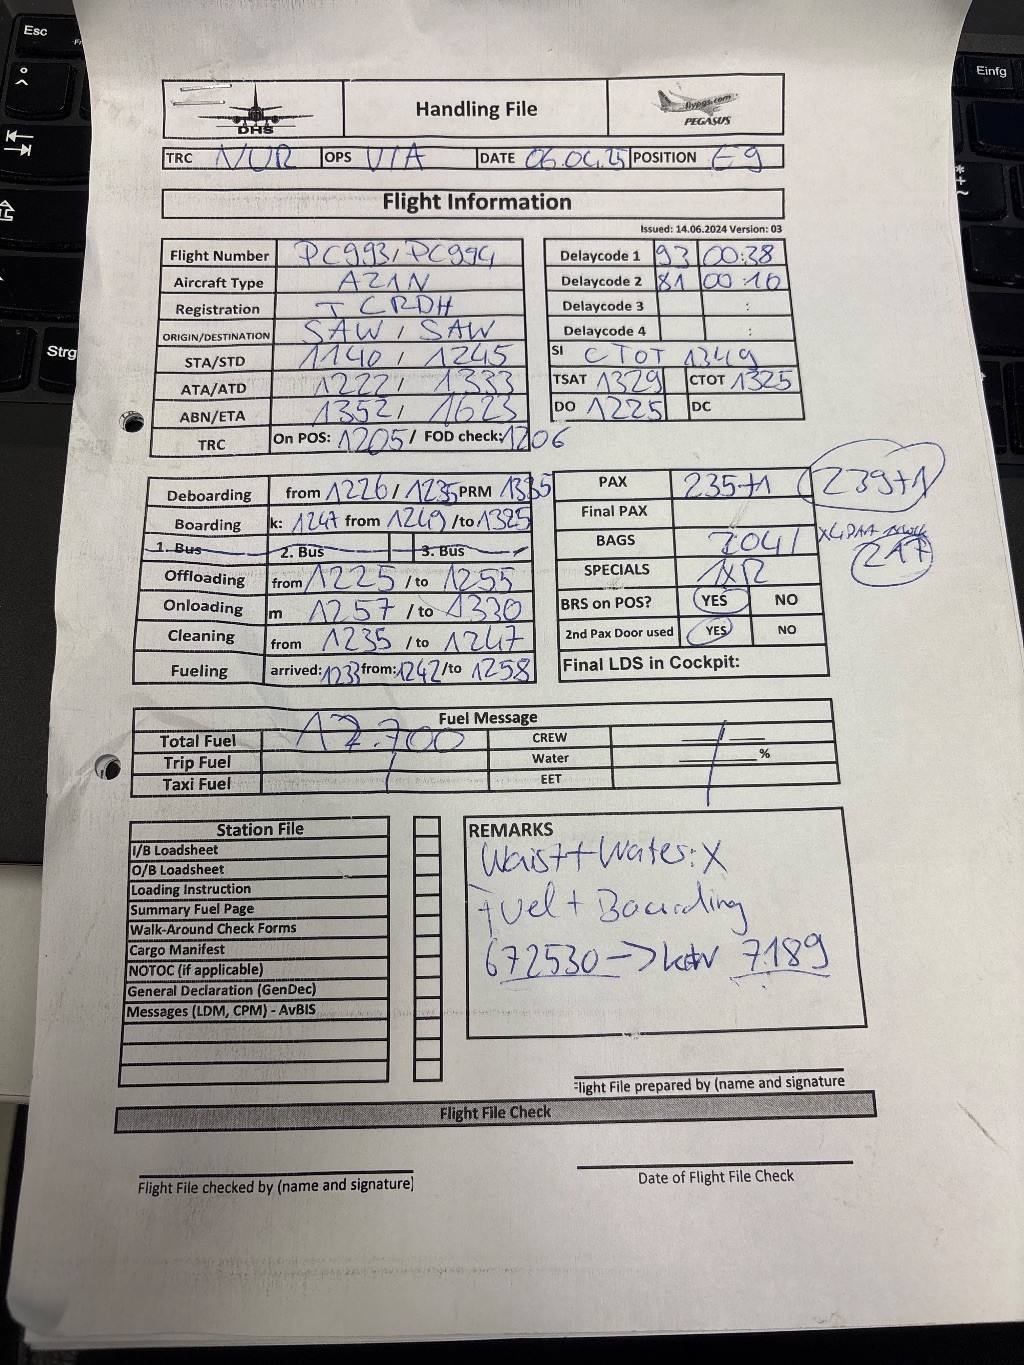 Esc
Einfg
Strg
DHS
Handling File
flypgs.com
PEGASUS
TRC NUR OPS VIA DATE 06.04.25 POSITION E9
Flight Information
Issued: 14.06.2024 Version: 03
Flight Number PC993/PC994 Delaycode 1 93 00:38
Aircraft Type A21N Delaycode 2 81 00:10
Registration TCRDH Delaycode 3 :
ORIGIN/DESTINATION SAW / SAW Delaycode 4 :
STA/STD 1140 / 1245 SI CTOT 1349
ATA/ATD 1222 / 1333 TSAT 1329 CTOT 1325
ABN/ETA 1352 / 1623 DO 1225 DC
TRC On POS: 1205 / FOD check: 1206
Deboarding from 1226 / 1235 PRM 1335 PAX 235+1 239+1
Boarding k: 1247 from 1249 /to 1325 Final PAX
1. Bus 2. Bus 3. Bus BAGS 204/ 217
Offloading from 1225 /to 1255 SPECIALS
Onloading m 1257 /to 1330 BRS on POS? YES NO
Cleaning from 1235 /to 1247 2nd Pax Door used YES NO
Fueling arrived: 1233 from: 1242 /to 1258 Final LDS in Cockpit:
Fuel Message
Total Fuel 12.700 CREW
Trip Fuel Water %
Taxi Fuel EET
Station File
I/B Loadsheet
O/B Loadsheet
Loading Instruction
Summary Fuel Page
Walk-Around Check Forms
Cargo Manifest
NOTOC (if applicable)
General Declaration (GenDec)
Messages (LDM, CPM) - AvBIS
REMARKS
Waist+Water: X
Fuel + Boarding
672530 -> 7189
Flight File prepared by (name and signature
Flight File Check
Flight File checked by (name and signature)
Date of Flight File Check